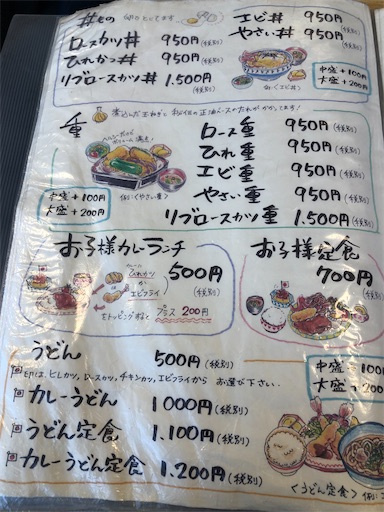 丼もの 卵でとじてます。
ロースカツ丼 950円(税別)
ひれかつ丼 950円(税別)
リブロースカツ丼 1.500円(税別)
エビ丼 950円(税別)
やさい丼 950円(税別)
中盛+100円
大盛+200円
例:(エビ丼)
重 煮込んだ玉ねぎと 秘伝の正油ベースのたれがかかってます!
ヘルシーだから
ボリューム満点!
ロース重 950円(税別)
ひれ重 950円(税別)
エビ重 950円(税別)
やさい重 950円(税別)
リブロースカツ重 1.500円(税別)
中盛+100円
大盛+200円
例:(やさい重)
お子様カレーランチ
500円
(税別)
カレーに
ひれかつ
か
エビフライ
をトッピングすると プラス 200円
お子様定食
700円
(税別)
うどん 500円(税別)
印は、ヒレカツ、ロースカツ、チキンカツ、エビフライから お選び下さい。
カレーうどん 1000円(税別)
うどん定食 1.100円(税別)
カレーうどん定食 1.200円(税別)
中盛+100円
大盛+200
〈うどん定食〉例: